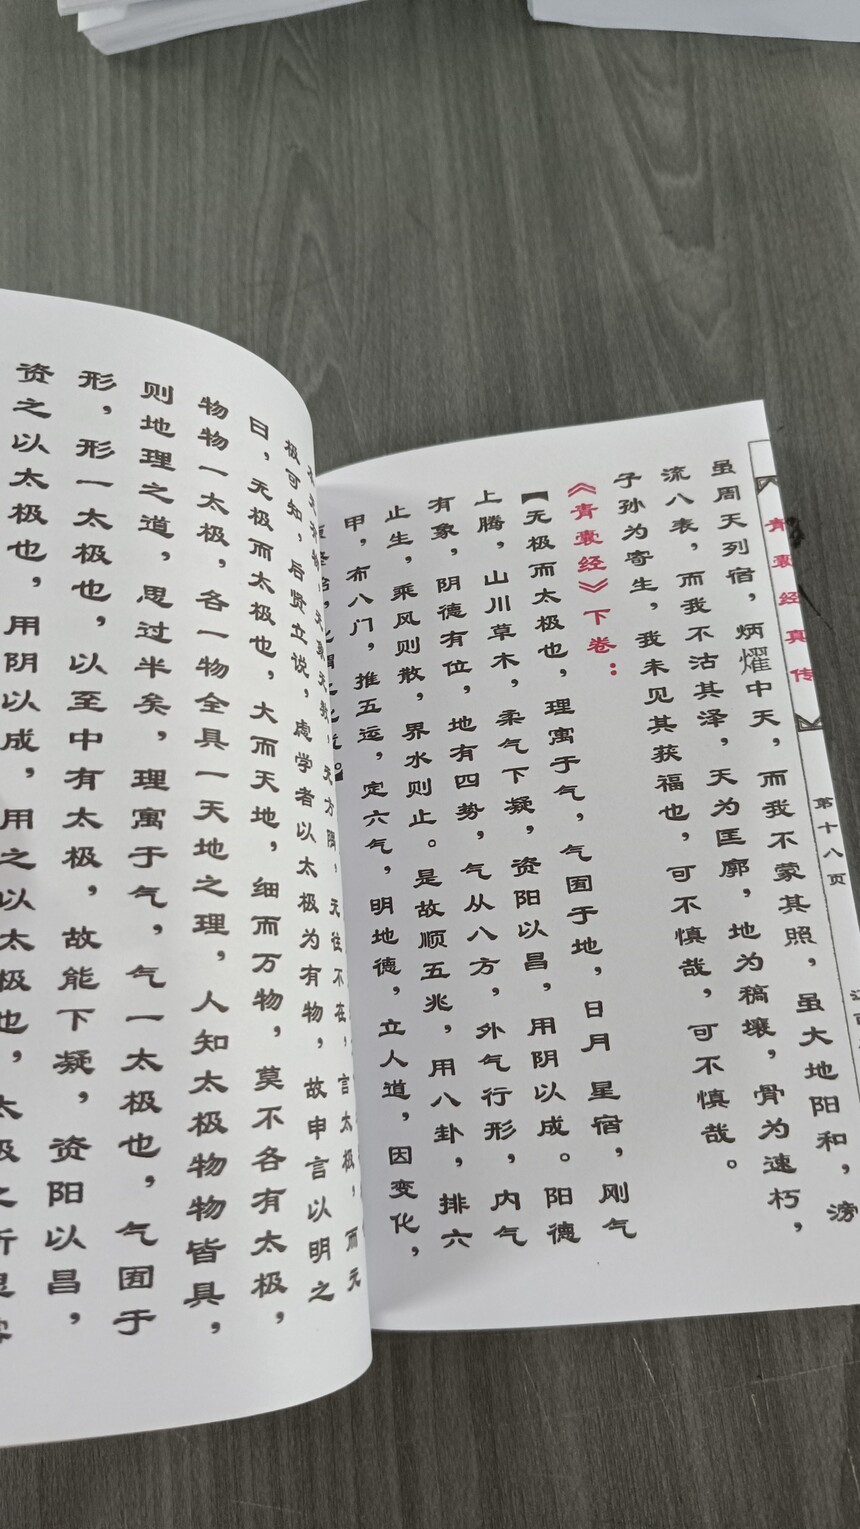 青囊经真传
第十八页
虽周天列宿，炳耀中天，而我不蒙其照，虽大地阳和，滂
流八表，而我不沾其泽，天为匡廓，地为稿壤，骨为速朽，
子孙为寄生，我未见其获福也，可不慎哉，可不慎哉。
《青囊经》下卷：
【无极而太极也，理寓于气，气囿于地，日月星宿，刚气
上腾，山川草木，柔气下凝，资阳以昌，用阴以成。阳德
有象，阴德有位，地有四势，气从八方，外气行形，内气
止生，乘风则散，界水则止。是故顺五兆，用八卦，排六
甲，布八门，推五运，定六气，明地德，立人道，因变化，
无方隅，无往不在，言太极，而无
极可知，后贤立说，虑学者以太极为有物，故申言以明之
曰，无极而太极也，大而天地，细而万物，莫不各有太极，
物物一太极，各一物全具一天地之理，人知太极物物皆具，
则地理之道，思过半矣，理寓于气，气一太极也，气囿于
形，形一太极也，以至中有太极，故能下凝，资阳以昌，
资之以太极也，用阴以成，用之以太极也，太极之所